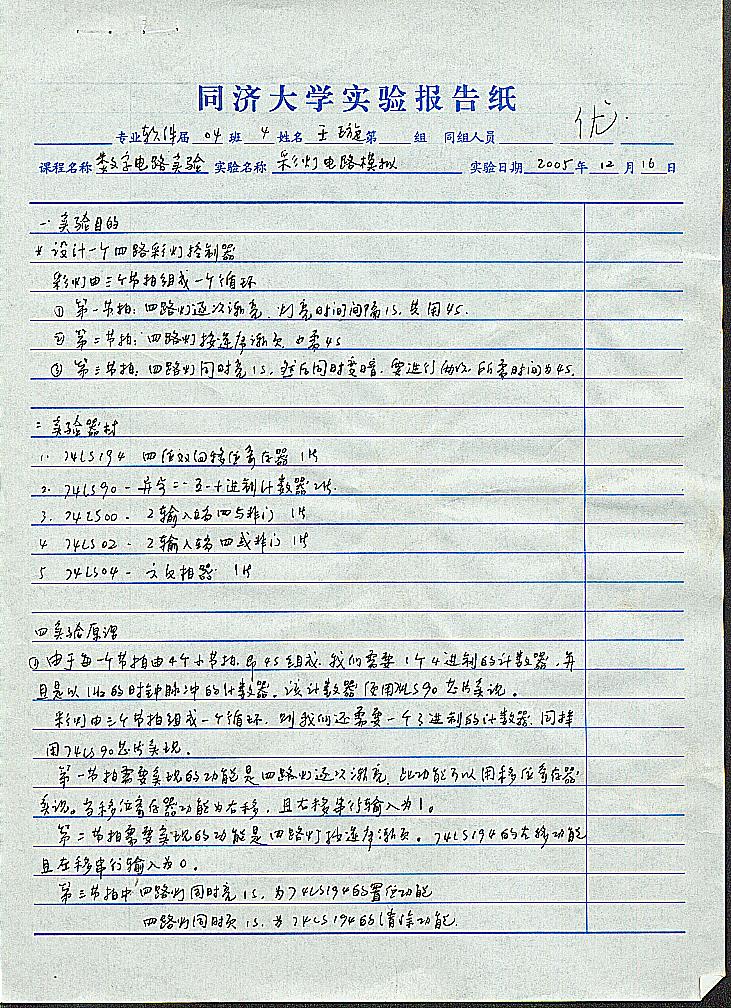 同济大学实验报告纸
优.
专业 软件 届 04 班 4 姓名 王璇 第 组 同组人员
课程名称 数字电路实验 实验名称 彩灯电路模拟 实验日期 2005 年 12 月 16 日
一. 实验目的
设计一个四路彩灯控制器
彩灯由三个节拍组成一个循环
① 第一节拍: 四路灯逐次渐亮, 灯亮时间间隔1S, 共用4S.
② 第二节拍: 四路灯按逆序渐灭, 也需4S
③ 第三节拍: 四路灯同时亮1S, 然后同时变暗, 要进行两次, 所需时间为4S.
二 实验器材
1. 74LS194 四位双向移位寄存器 1片
2. 74LS90 - 异步二-五-十进制计数器 2片
3. 74LS00 - 2输入端四与非门 1片
4 74LS02 - 2输入端四或非门 1片
5 74LS04 - 六反相器 1片
四 实验原理
① 由于每一个节拍由4个小节拍, 即4S组成. 我们需要1个4进制的计数器, 并
且是以1Hz的时钟脉冲的计数器. 该计数器使用74LS90芯片实现.
彩灯由三个节拍组成一个循环. 则我们还需要一个3进制的计数器. 同样
用74LS90芯片实现.
第一节拍需要实现的功能是四路灯逐次渐亮, 此功能可以用移位寄存器
实现. 当移位寄存器功能为右移, 且右移串行输入为1.
第二节拍需要实现的功能是四路灯按逆序渐灭. 74LS194的左移功能
且左移串行输入为0.
第三节拍中 四路灯同时亮1S, 为74LS194的置位功能
四路灯同时灭1S, 为74LS194的清除功能.